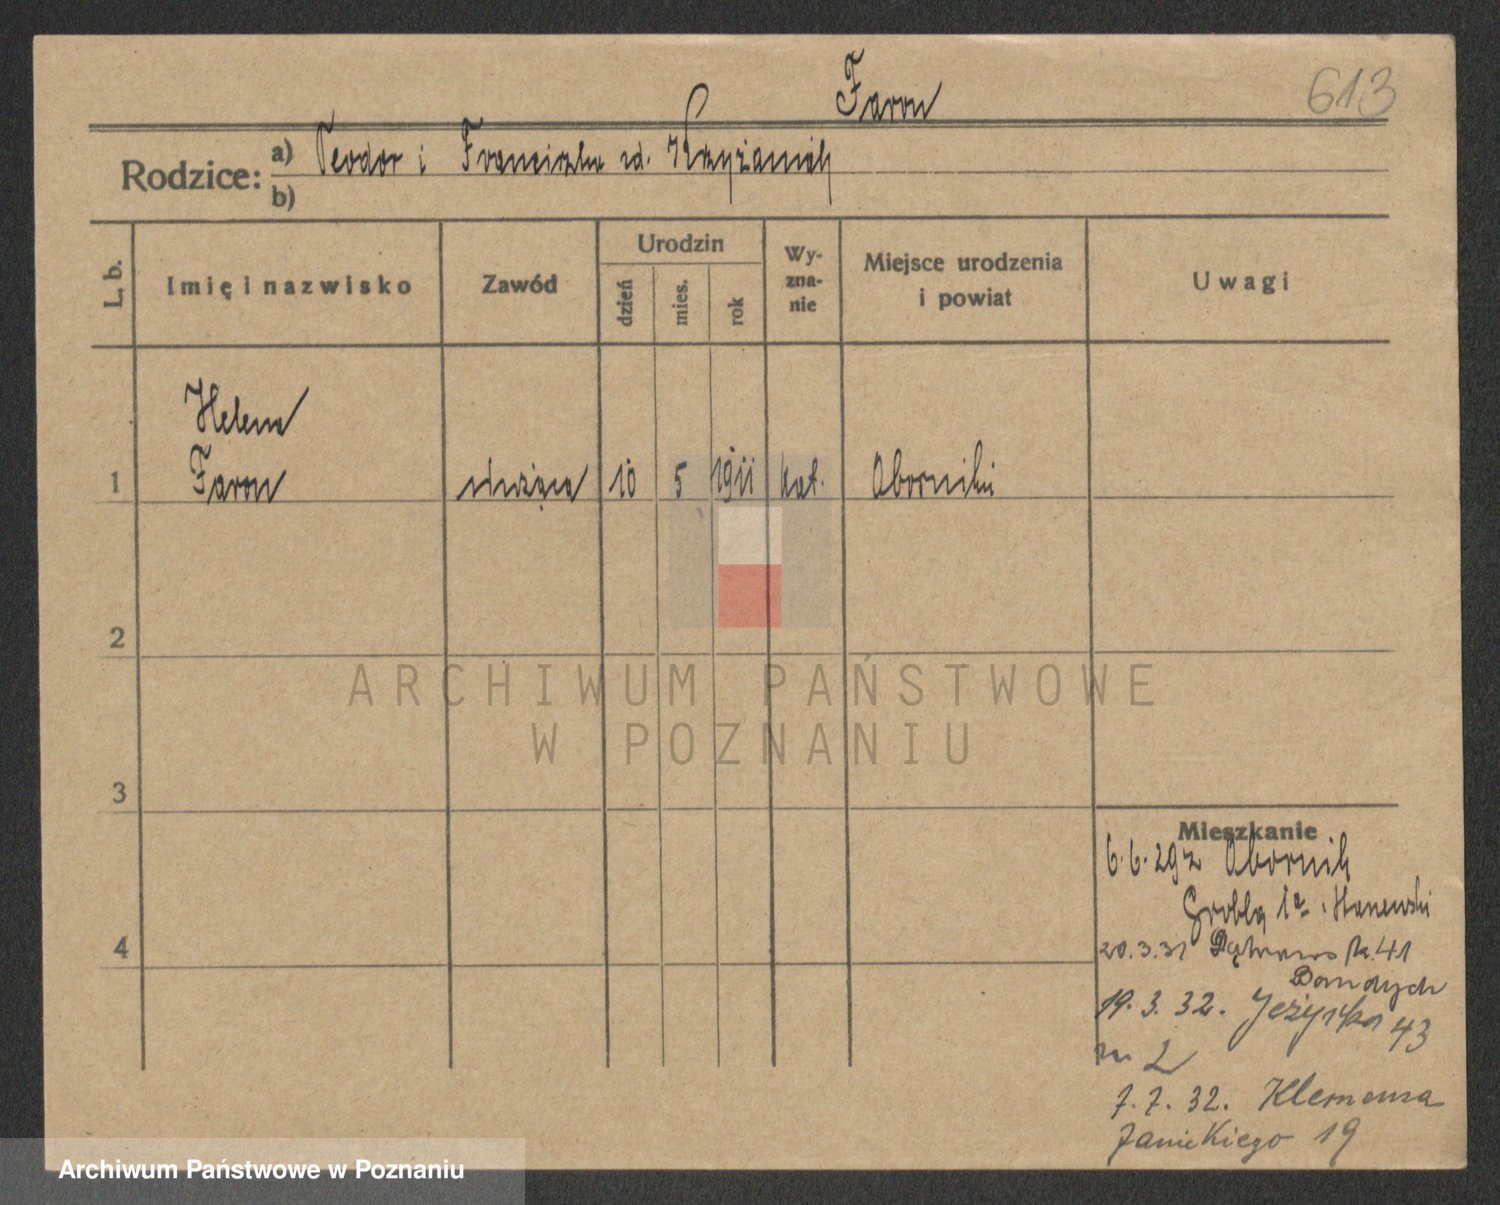 Faron
613
Rodzice:
a) Teodor i Franciszka zd. Krzyżaniak
b)
L. b.
Imię i nazwisko
Zawód
Urodzin
dzień
mies.
rok
Wy-
zna-
nie
Miejsce urodzenia
i powiat
Uwagi
Helena
1 Faron służąca 10 5 1911 kat. Oborniki
2
3
4
Mieszkanie
6.6.29 z Obornik
Grobla 1a
20.3.31 41
19.3.32. Jeżycka 43
m 2
7.7.32. Klemensa
Janickiego 19
ARCHIWUM PAŃSTWOWE
W POZNANIU
Archiwum Państwowe w Poznaniu